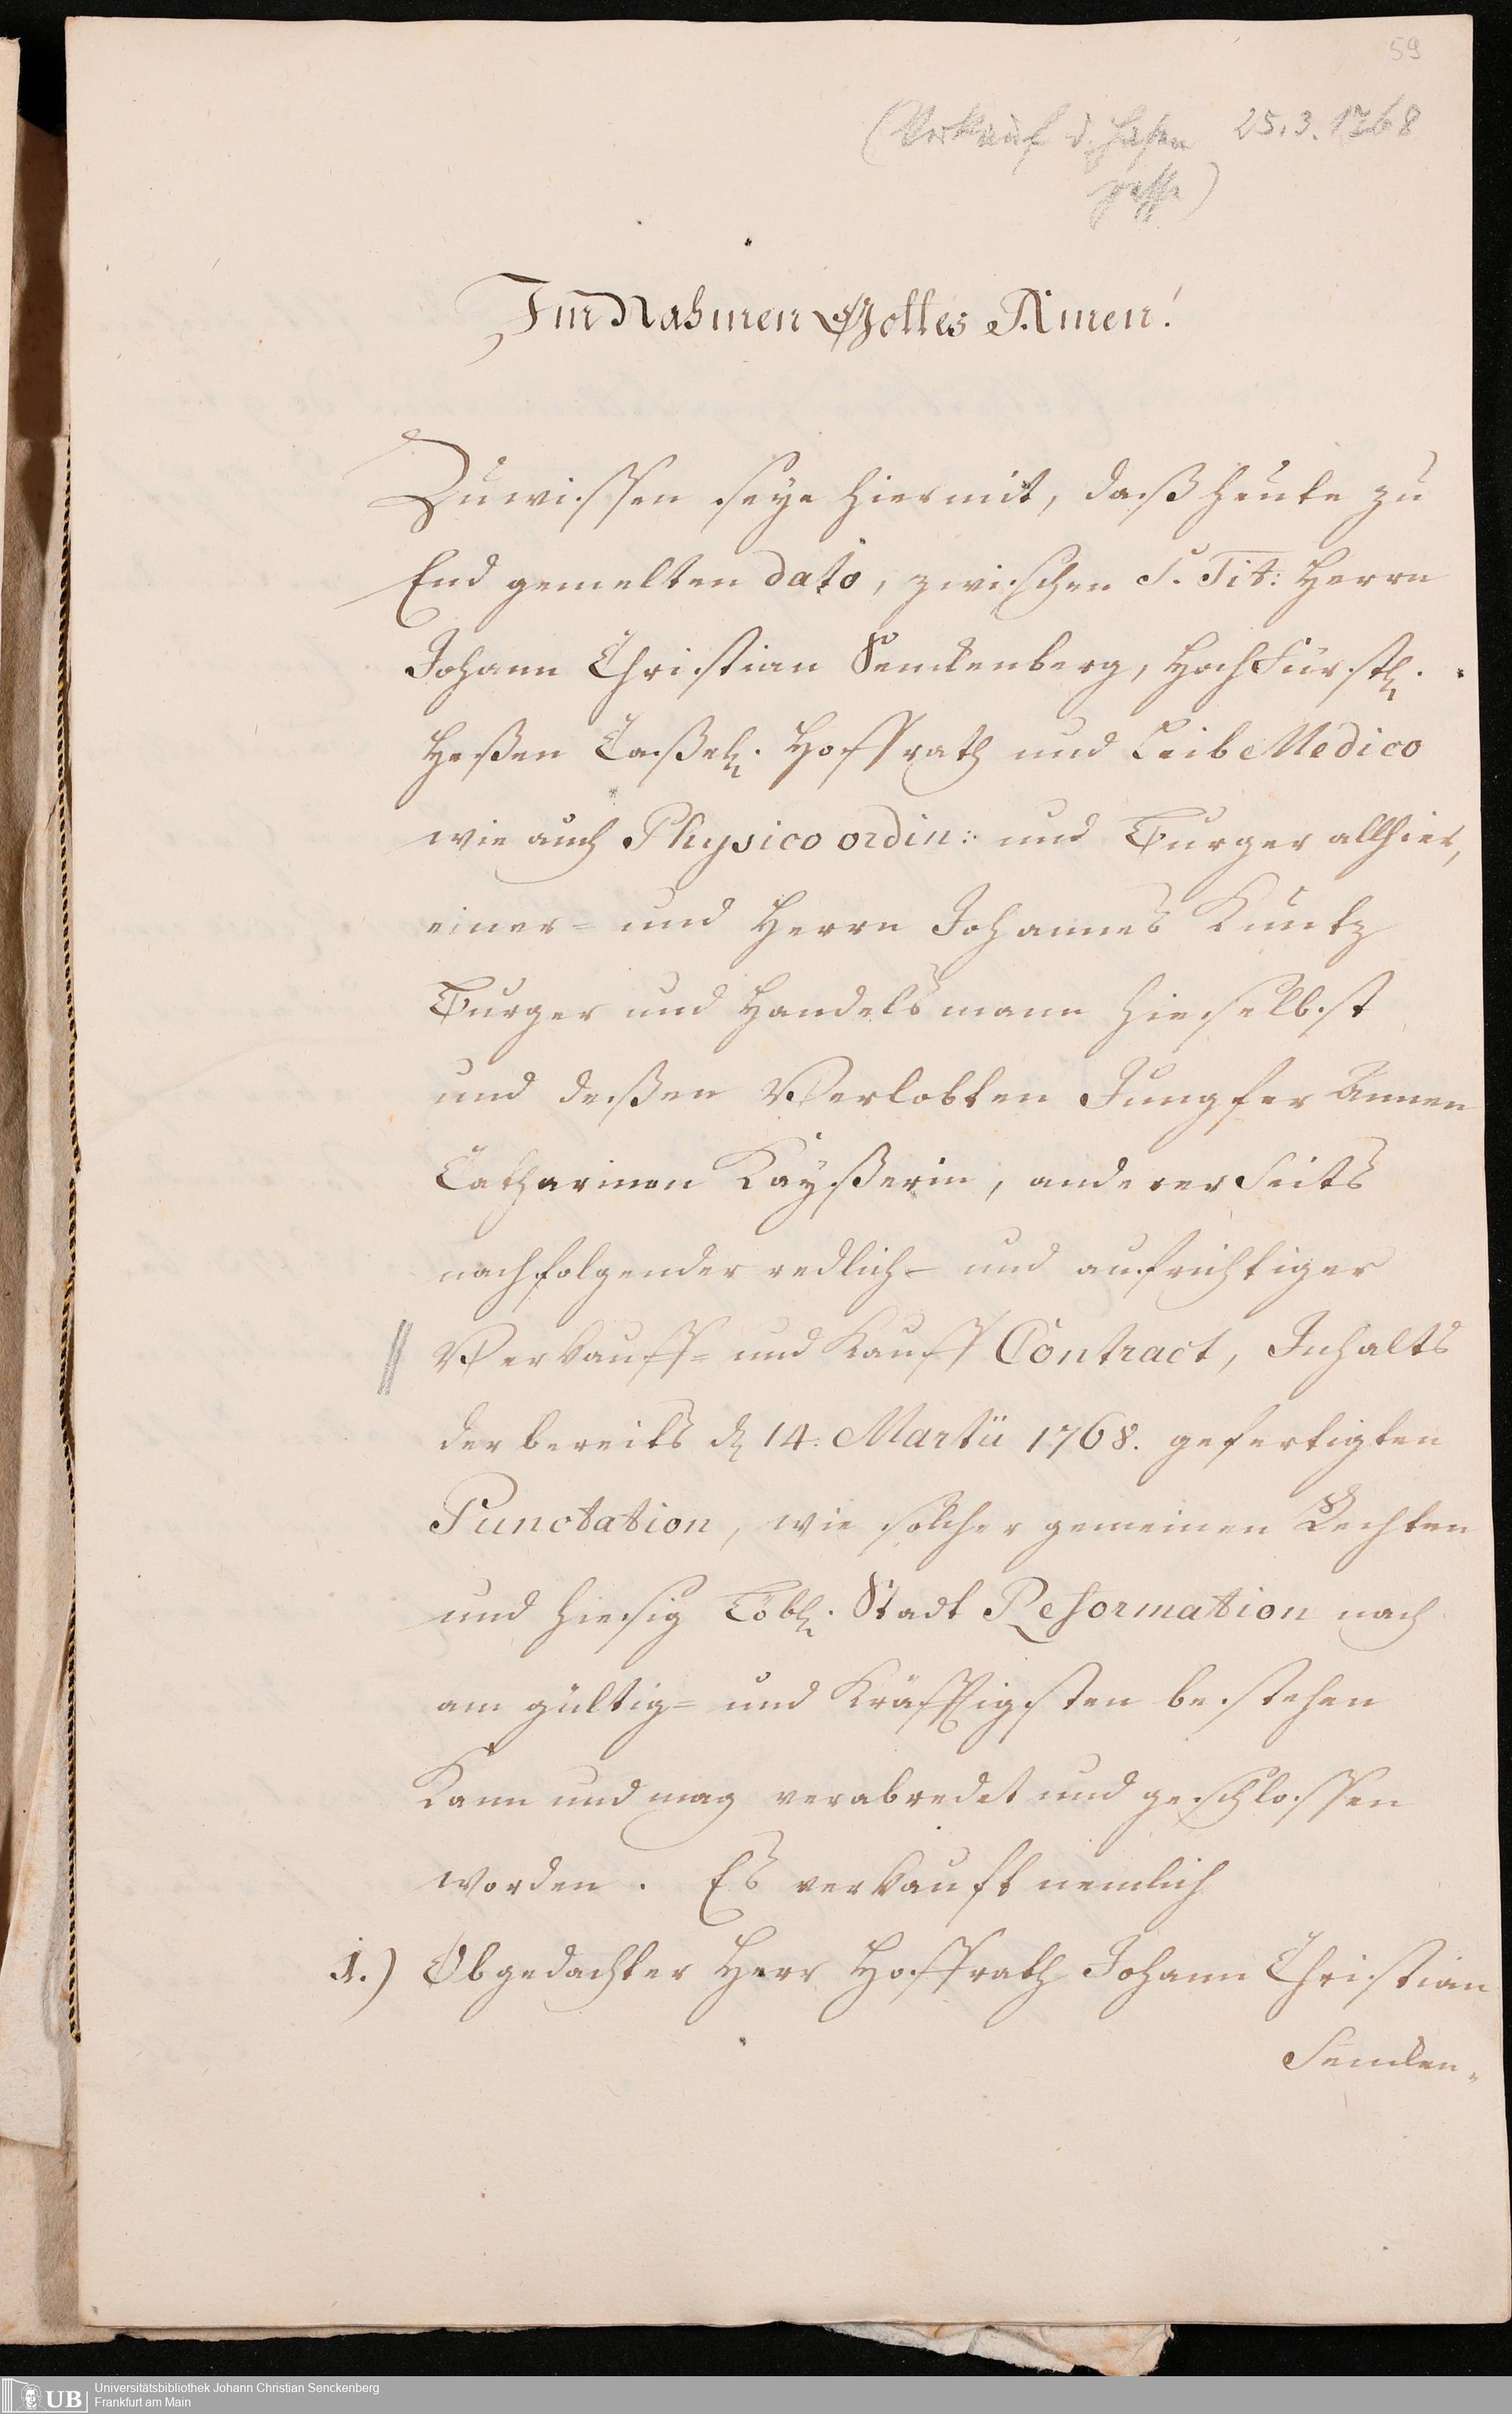 59
(Verkauf d. Hasen 25.3.1768
gasse)
Im Nahmen Gottes Amen!
Zu wissen seye hiermit, daß heute zu
End gemelten dato, zwischen S. Tit: Herrn
Johann Christian Senckenberg, HochFürstl.
Heßen Caßel. Hoffrath und Leib Medico
wie auch Physico ordin: und Burger allhier,
einer= und Herrn Johannes Kuntz
Burger und Handelsmann hieselbst
und deßen Verlobten Jungfer Annen
Catharinen Kayßerin, anderer Seits
nachfolgender redlich- und aufrichtiger
Verkauff= und Kauff Contract, Inhalts
der bereits d 14. Martii 1768. gefertigten
Punctation, wie solcher gemeinen Rechten
und hiesig Löbl. Stadt Reformation nach
am gültig= und Kräfftigsten bestehen
Kann und mag verabredet und geschlossen
worden. Es verkauft nemlich
1.) Obgedachter Herr Hoffrath Johann Christian
Sencken=
UB Universitätsbibliothek Johann Christian Senckenberg
Frankfurt am Main